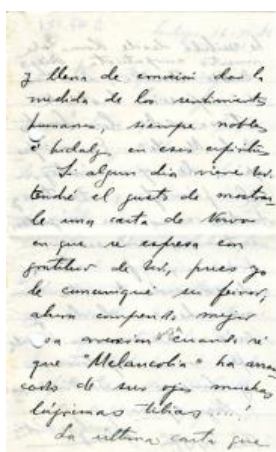 y llena de emoción dar la
medida de los sentimientos
humanos, siempre nobles
e hidalgos en esos espíritus
Si algun dia viene Ud.
tendré el gusto de mostrar
le una carta de
en que se expresa con
gratitud de Ud, pues yo
le comuniqué su fervor,
ahora comprendo mejor
su cuando sé
que "Melancolía" ha arran
cado de sus ojos muchas
lágrimas tibias ...!
La última carta que